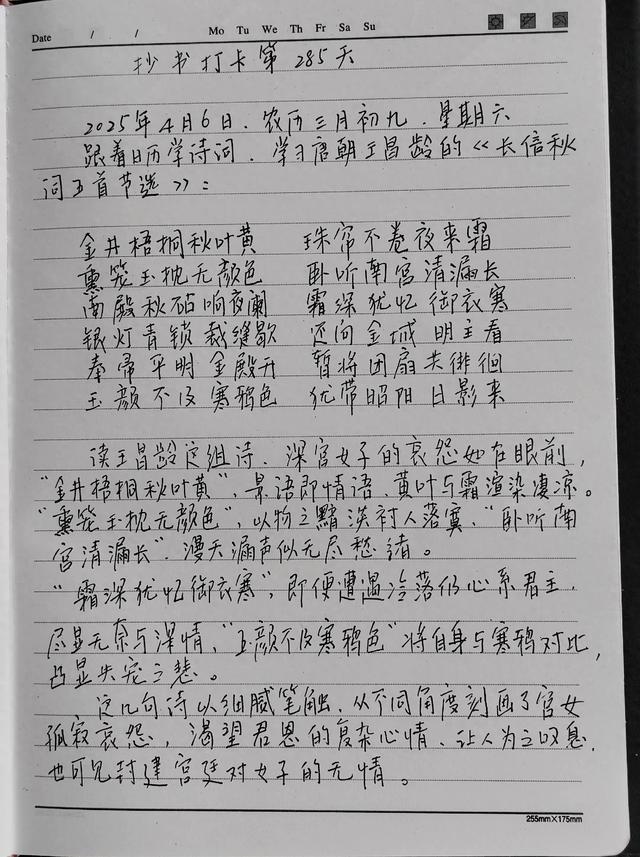 Date / / Mo Tu We Th Fr Sa Su
抄书打卡第285天
2025年4月6日．农历三月初九．星期六
跟着日历学诗词．学习唐朝王昌龄的《长信秋
词五首节选》：
金井梧桐秋叶黄 珠帘不卷夜来霜
熏笼玉枕无颜色 卧听南宫清漏长
南殿秋砧响夜阑 霜深犹忆御衣寒
银灯青锁裁缝歇 还向金城明主看
奉帚平明金殿开 暂将团扇共徘徊
玉颜不及寒鸦色 犹带昭阳日影来
读王昌龄这组诗．深宫女子的哀怨如在眼前，
“金井梧桐秋叶黄”，景语即情语．黄叶与霜渲染凄凉。
“熏笼玉枕无颜色”，以物之黯淡衬人落寞．“卧听南
宫清漏长”．漫天漏声似无尽愁绪。
“霜深犹忆御衣寒”，即便遭遇冷落仍心系君主．
尽显无奈与深情，“玉颜不及寒鸦色”将自身与寒鸦对比，
凸显失宠之悲。
这几句诗以细腻笔触．从不同角度刻画了宫女
孤寂哀怨，渴望君恩的复杂心情．让人为之叹息．
也可见封建宫廷对女子的无情。
255mm×175mm